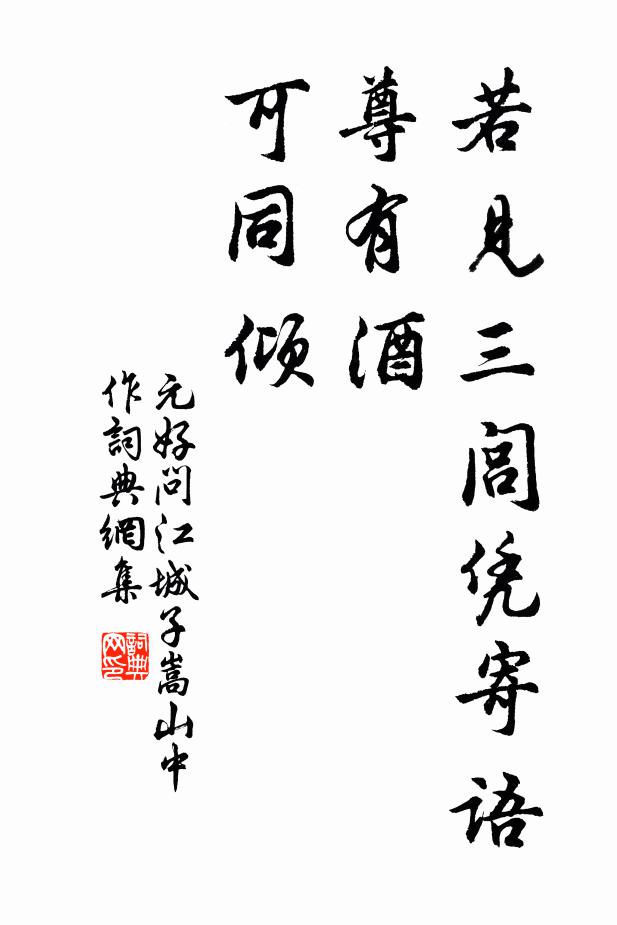 若见三闾凭寄语
尊有酒
可同倾
元好问江城子嵩山中
作詞典網集
詞典网印